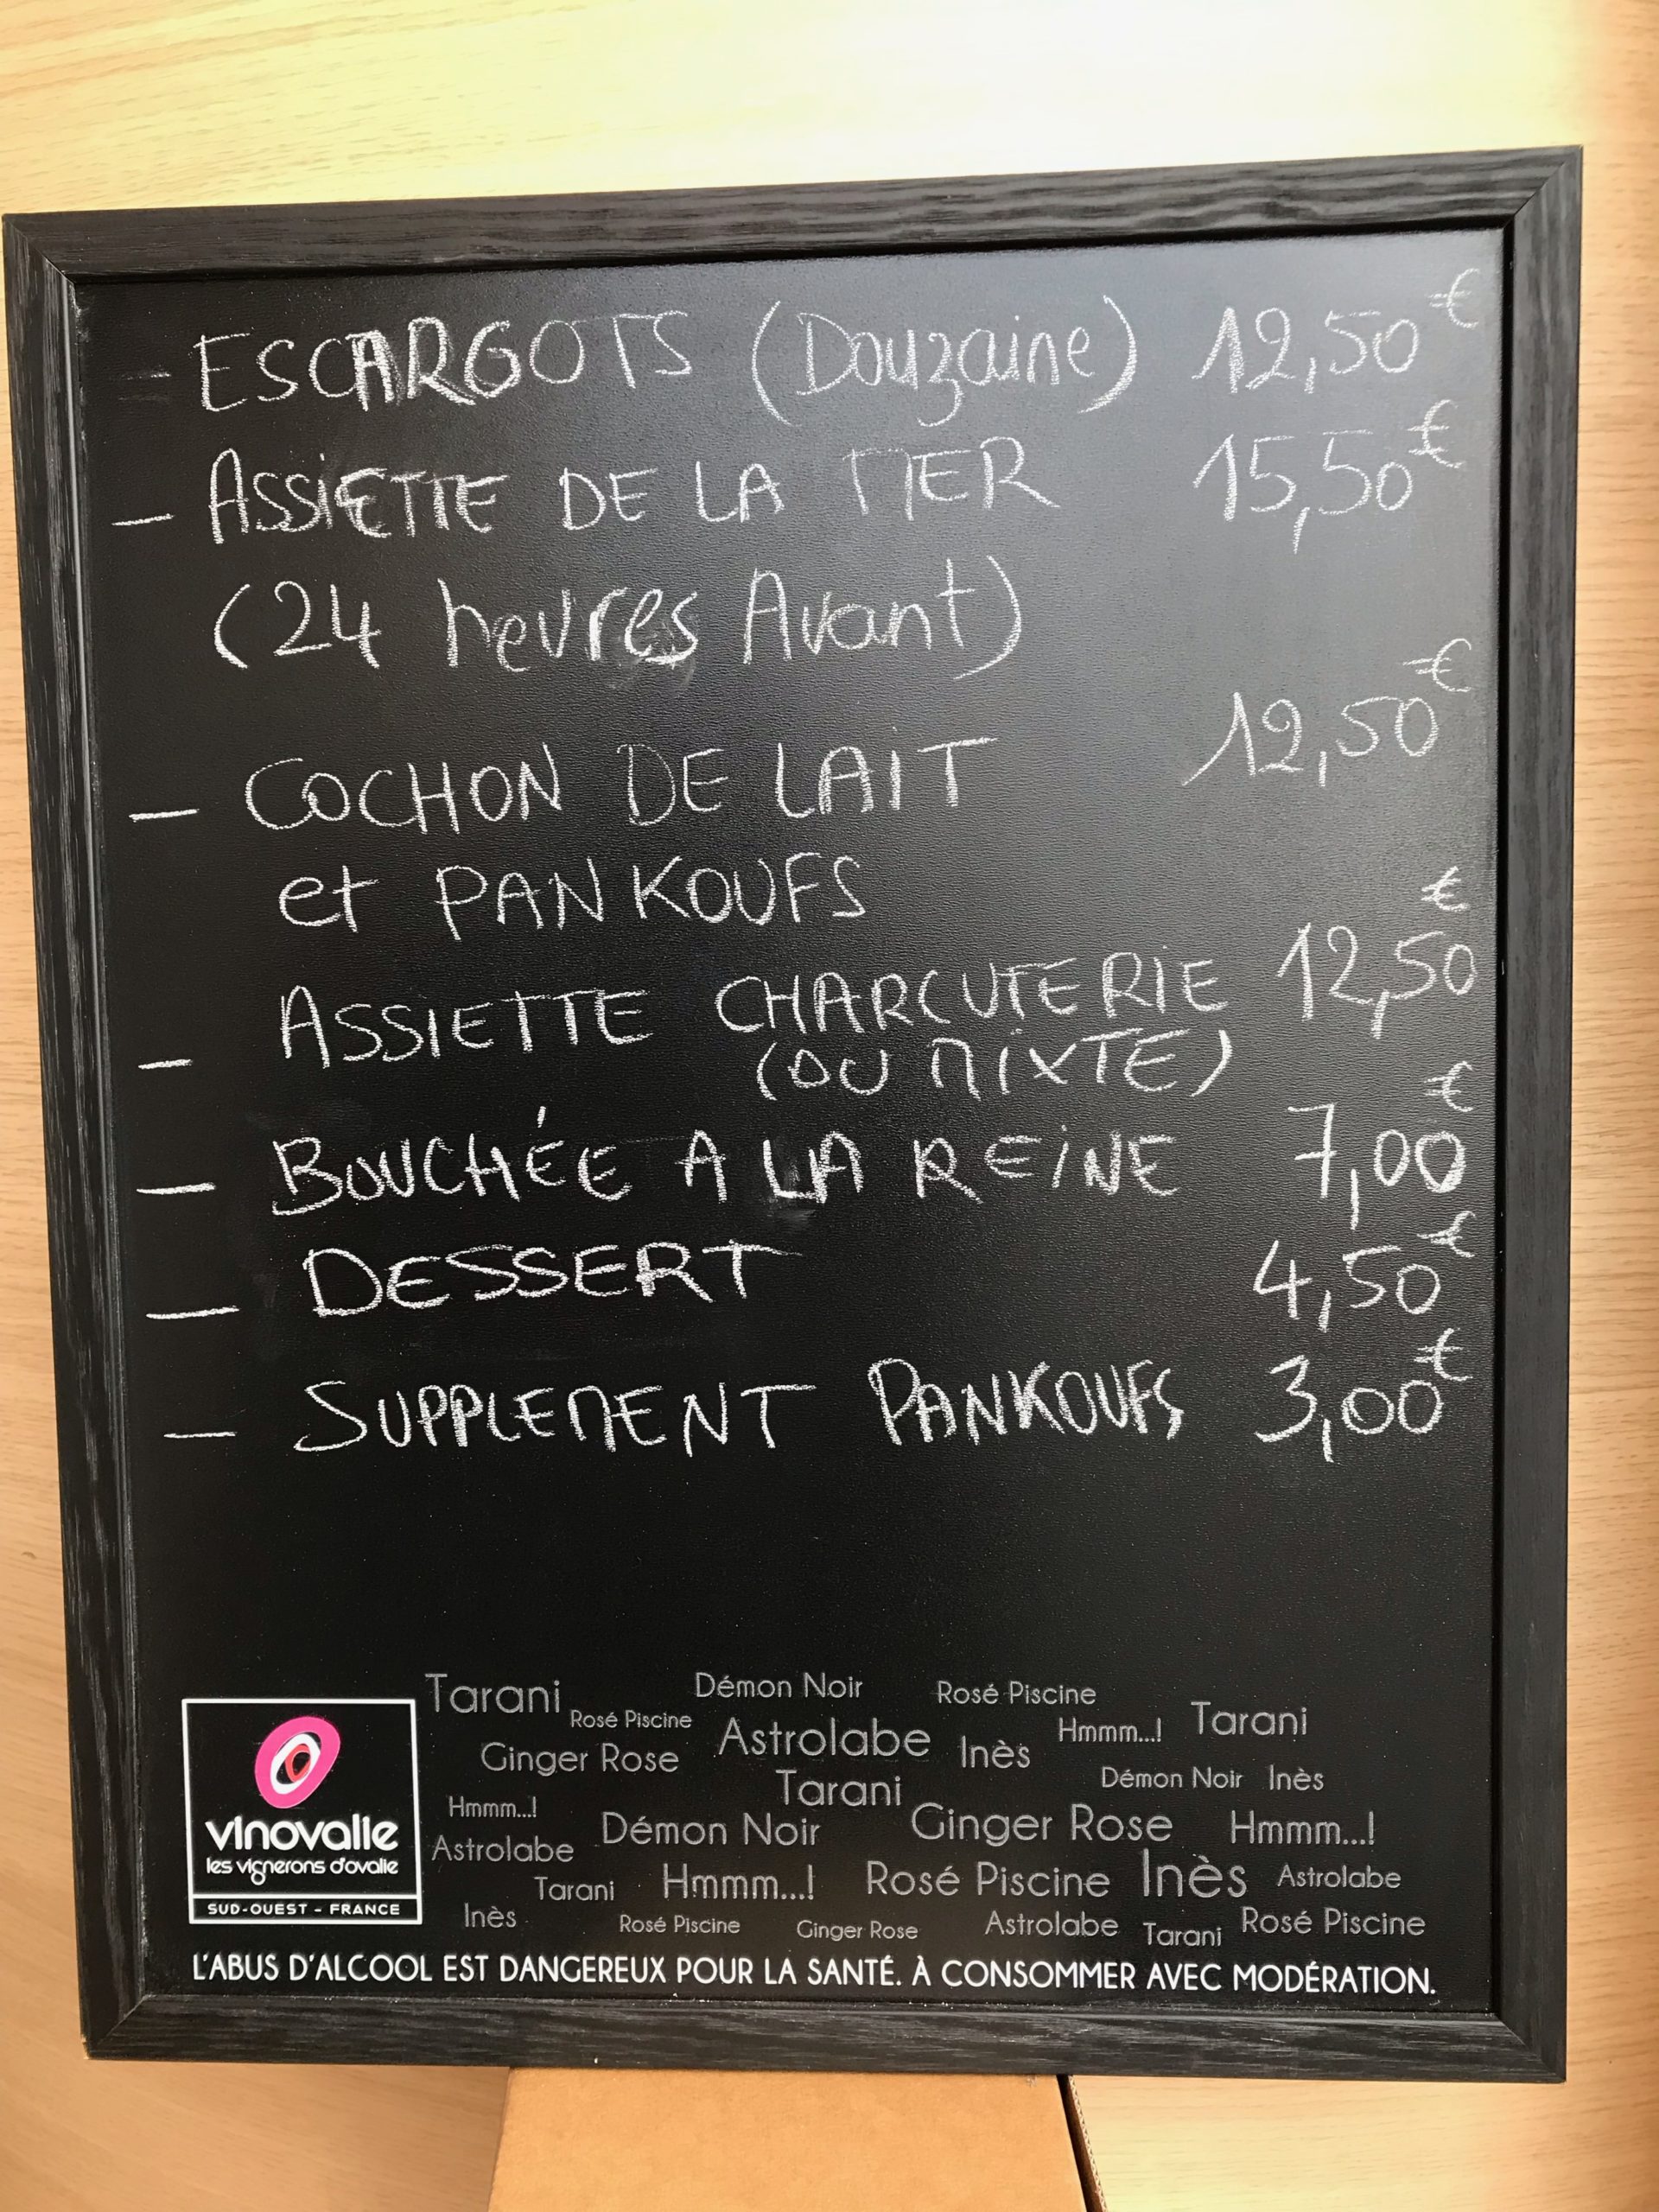 - ESCARGOTS (Douzaine) 12,50€
- ASSIETTE DE LA MER 15,50€
(24 heures Avant)
- COCHON DE LAIT 12,50€
et PANKOUFS
- ASSIETTE CHARCUTERIE 12,50€
(OU MIXTE)
- BOUCHÉE A LA REINE 7,00€
- DESSERT 4,50€
- SUPPLEMENT PANKOUFS 3,00€
Tarani Démon Noir Rosé Piscine
Rosé Piscine Astrolabe Hmmm...! Tarani
Ginger Rose Inès
Tarani Démon Noir Inès
Hmmm...! Démon Noir Ginger Rose Hmmm...!
Astrolabe
Tarani Hmmm...! Rosé Piscine Inès Astrolabe
Inès Rosé Piscine Ginger Rose Astrolabe Tarani Rosé Piscine
vinovalie
les vignerons d'ovalie
SUD-OUEST - FRANCE
L'ABUS D'ALCOOL EST DANGEREUX POUR LA SANTÉ. À CONSOMMER AVEC MODÉRATION.